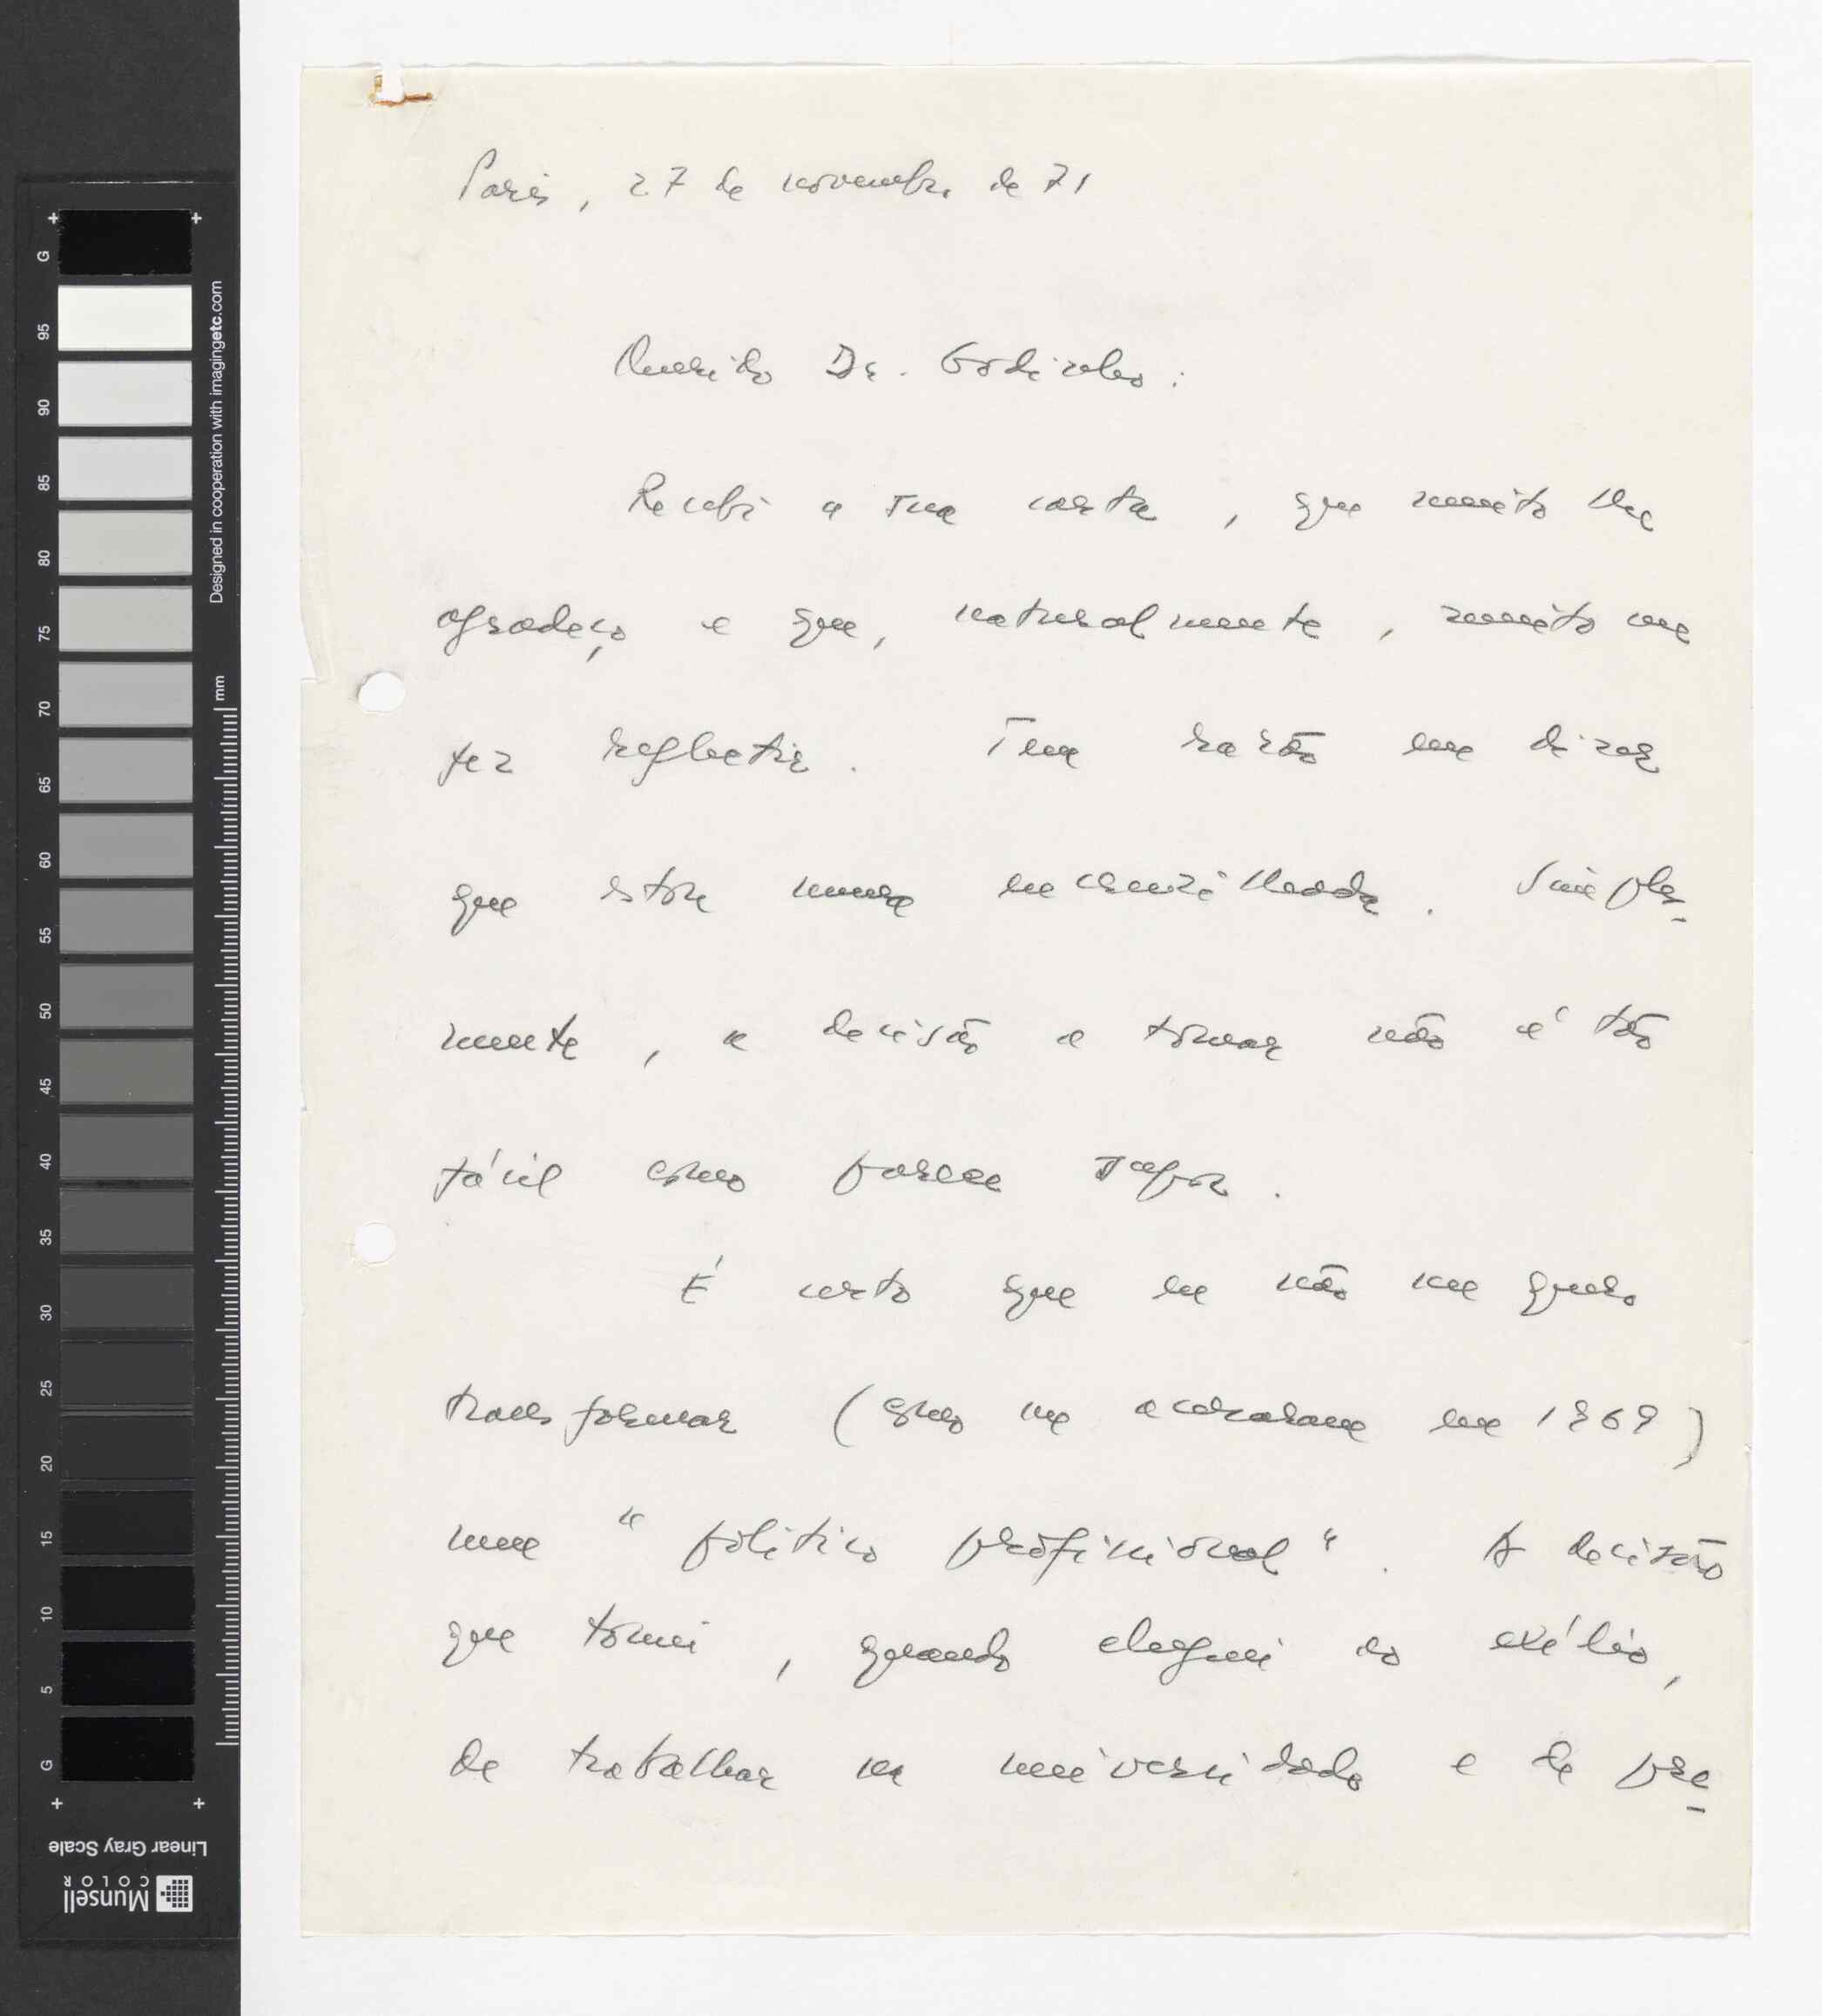 Paris, 27 de novembro de 71
Querido Dr. Godinho:
Recebi a sua carta, que muito lhe
agradeço e que, naturalmente, muito me
fez reflectir. Tem razão em dizer
que estou numa encruzilhada. Simples-
mente, a decisão a tomar não é tão
fácil como parece supor.
É certo que eu não me quero
transformar (como me acusaram em 1969)
num "político profissional". A decisão
que tomei, quando cheguei ao exílio,
de trabalhar na universidade e de pre-
G 95 90 85 80 75 70 65 60 55 50 45 40 35 30 25 20 15 10 5 G
mm
Designed in cooperation with imagingetc.com
Linear Gray Scale
Munsell
COLOR